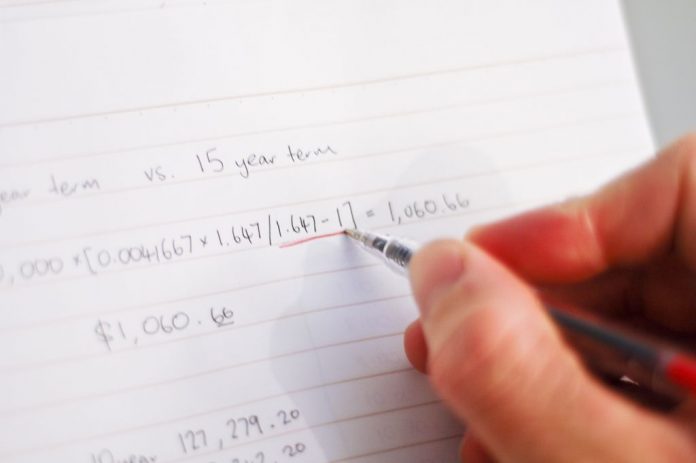 year term vs. 15 year term
0,000 × [0.0041667 × 1.647/1.647-1] = 1,060.66
$1,060.66
10 year 127,279.20